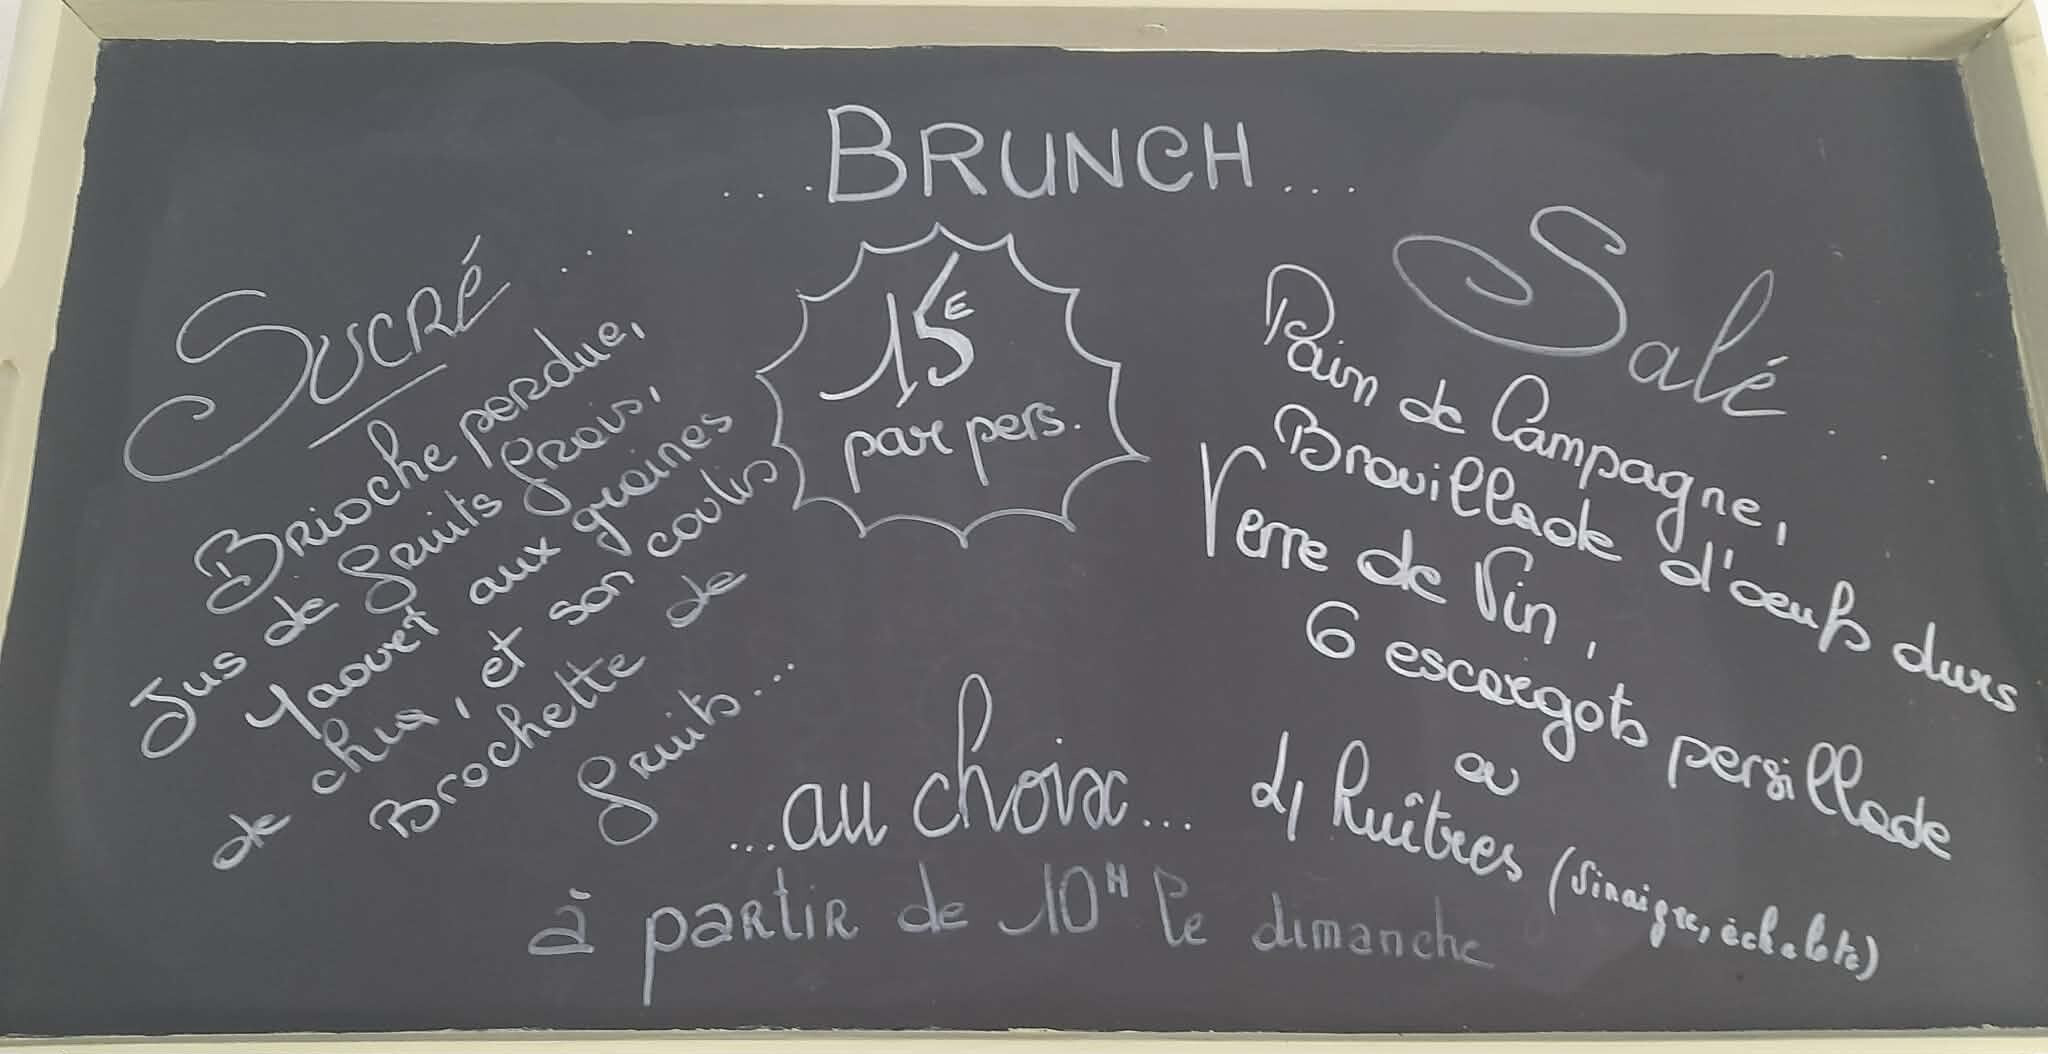 ... BRUNCH ...
SUCRÉ ...
Brioche perdue,
Jus de fruits frais,
Yaourt aux graines
de chia, et son coulis
Brochette de
fruits...
15€
par pers.
Salé
Pain de Campagne,
Brouillade d'œufs durs
Verre de Vin,
6 escargots persillade
ou
4 huîtres (Vinaigre, échalote)
...au choix...
à partir de 10H le dimanche